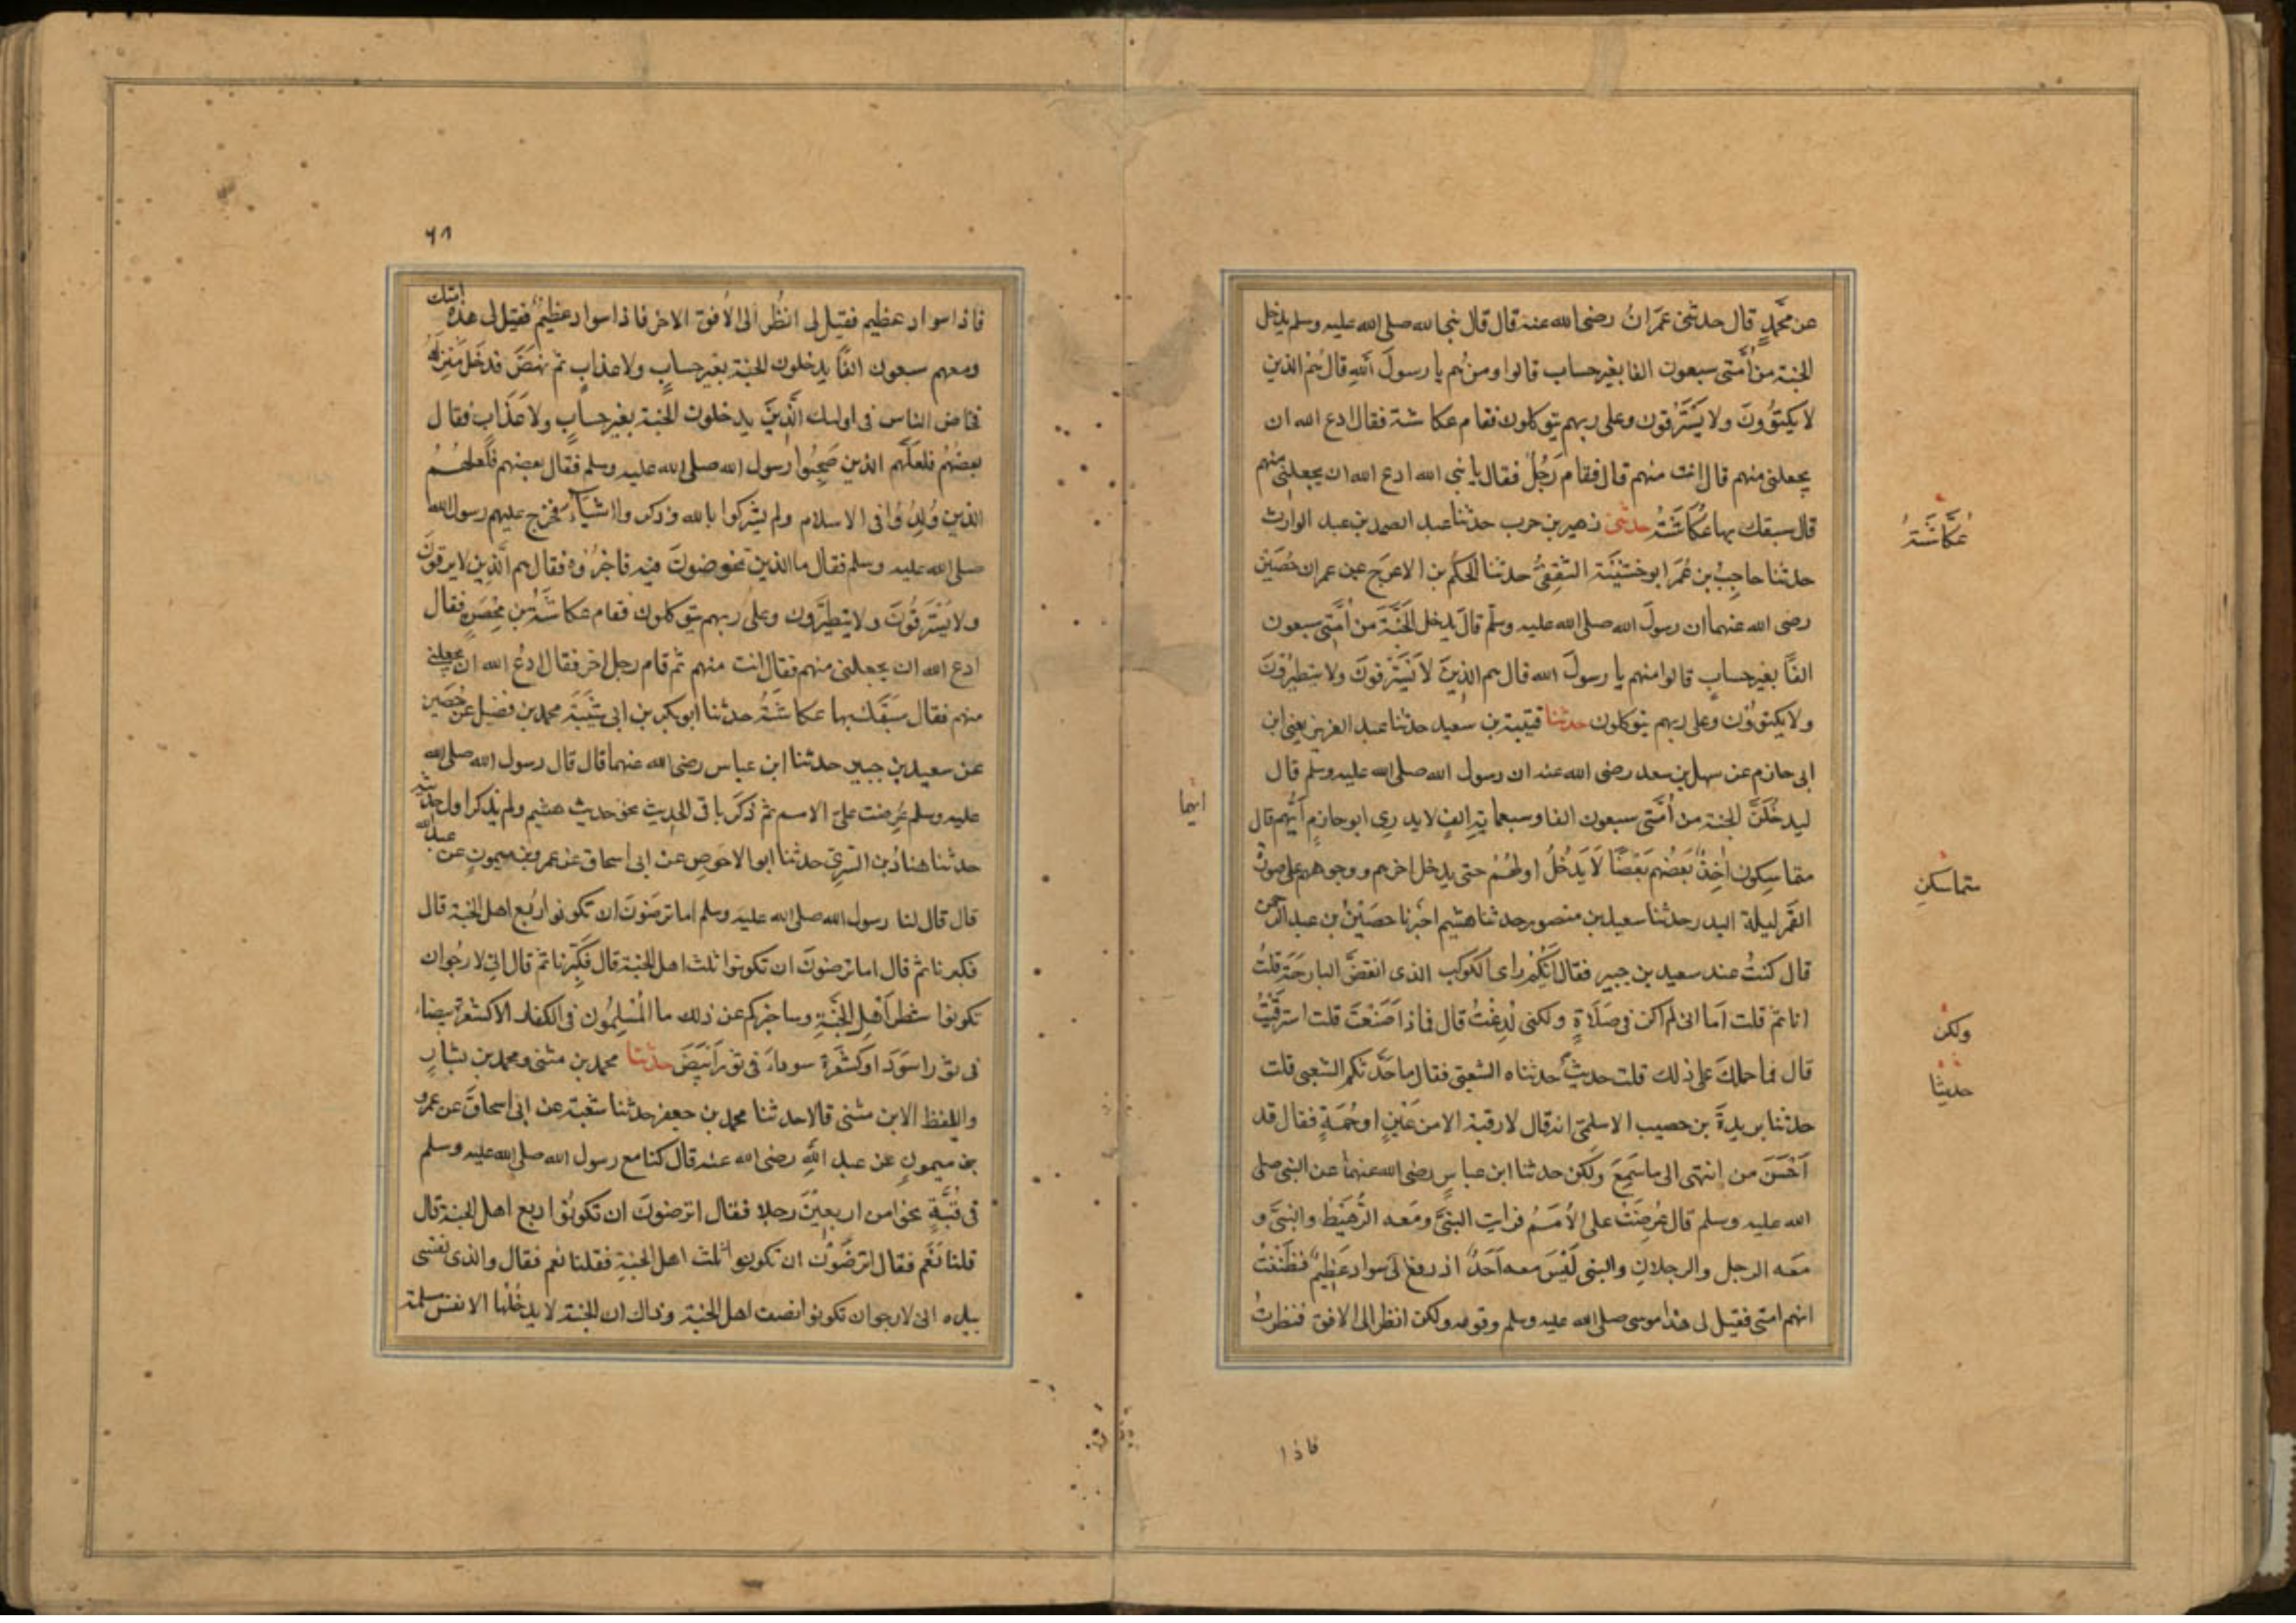 عن محمدٍ قال حدثنى عمَرانُ رضى الله عنه قال قال نبى الله صلى الله عليه وسلم يدخل
الجنة من اُمَّتى سبعون الفا بغير حساب قالوا ومن هُم يا رسولَ اللهِ قال هُم الذين
لا يكتَوُونَ ولا يَسْتَرْقون وعلى ربهم يتوكلون فقام عكاشة فقال ادع الله ان
يجعلنى منهم قال انت منهم قال فقام رَجُلٌ فقال يا نبى الله ادع الله ان يجعلنى منهم
قال سبقك بها عُكَّاشَةُ حدثنى زهير بن حرب حدثنا عبد الصمد بن عبد الوارث
عُكَّاشَةُ
حدثنا حاجِبُ بن عُمَرَ ابو خشَيْنَة الثقفِىُّ حدثنا الحَكم بن الاعرَج عن عمران حصَيْن
رضى الله عنهما ان رسولَ الله صلى الله عليه وسلم قالَ يدخل الجَنَّةَ من اُمَّتى سبعون
الفًا بغير حسابٍ قالوا منهم يا رسولَ الله قال هم الذينَ لا يَسْتَرْقونَ ولا يتطيرُونَ
ولا يكتوُوْن وعلى ربهم يتوكلون حدثنا قتيبة بن سعيد حدثنا عبد العزيز يعنى ابن
ابى حازم عن سهل بن سعد رضى الله عنه ان رسول الله صلى الله عليه وسلم قال
ليدخُلَنَّ الجنة من اُمَّتى سبعون الفا وسبعماية الفٍ لا يدرى ابو حازمٍ اَيُّهم قال
ايهما
متماسكون اٰخِذٌ بَعْضُهم بَعْضًا لَا يَدْخُلُ اولهُمْ حتى يدخل اخرهم ووجوههم على صورة
متماسكين
القَمَر ليلة البدر حدثنا سعيد بن منصور حدثنا هشيم اخبرنا حصَيْنُ بن عبد الرحمن
قال كنتُ عند سعيد بن جبير فقال اَيُّكُمْ راى الكوكب الذى انقضَّ البارحَةَ قلتُ
انا ثم قلت اَما انى لم اكن فى صَلَاةٍ ولكنى لُدِغْتُ قال فماذا صَنَعْتَ قلت استرقَيْتُ
ولكن
قالَ فما حملكَ على ذلك قلت حديثٌ حدثناه الشعبى فقال ما حَدَّثكم الشعبى قلت
حديثا
حدثنا بريدةَ بن حصيب الاسلمى انه قال لا رقية الا من عَيْنٍ او حُمَةٍ فقال قد
اَحْسَنَ من انتهى الى ما سَمِعَ ولَكن حدثنا ابن عباسٍ رضى الله عنهما عن النبى صلى
الله عليه وسلم قال عُرِضَتْ على الاُمَمُ فرايت النبىَّ ومَعه الرُّهَيْطُ والنبىَّ و
مَعه الرجل والرجلانِ والنبى لَيْسَ معه اَحَدٌ اذ رفع لى سوادٌ عَظِيمٌ فظَنَنْتُ
انهم امتى فقيل لى هذا موسى صلى الله عليه وسلم وقومه ولكن انظر الى الافق فنظرتُ
فاذا
٦٨
فاذا سواد عظيم فقيل لى انظُر الى الاُفق الاخر فاذا سواد عظيمٌ فقيل لى هذه امتك
ومعهم سبعون الفًا يدخلون الجنة بغير حسابٍ ولا عذابٍ ثم نهَضَ فدخَل مَنزِلَهُ
فخاض الناس فى اولئك الَّذِينَ يدخلون الجنة بغير حسابٍ ولا عَذَابٍ فقال
بعضُهُم فلعَلَّهم الذين صَحِبُوا رسول الله صلى الله عليه وسلم فقال بعضهم فلعلهُمْ
الذين وُلِدُوْا فى الاسلام ولم يشركوا بالله وذكروا اشياءَ فخرج عليهم رسول الله
صلى الله عليه وسلم فقال ما الذين تخوضونَ فيه فاخبرُوْهُ فقال هم الَّذِين لا يرقونَ
ولا يَسْتَرقُونَ ولا يتطيَّرون وعلى ربهم يتوكلون فقام عكاشَةُ بن مِحْصَنٍ فقال
ادع الله ان يجعلنى منهم فقال انت منهم ثم قام رجل اخر فقال ادعُ الله ان يجعلنى
منهم فقال سَبَقَكَ بها عكاشَةُ حدثنا ابو بكر بن ابى شَيْبَةَ محمد بن فضيل عن حُصَين
عن سعيد بن جبير حدثنا ابن عباس رضى الله عنهما قال قال رسول الله صلى الله
عليه وسلم عُرِضت علىّ الامم ثم ذكَرَ باقى الحديث نحو حديث هشيم ولم يذكر اول حديثه
حدثنا هنادُ بن السَّرِىّ حدثنا ابو الاحوصِ عن ابى اسحاق عن عمرو بن ميمونٍ عن عبد الله
قال قال لنا رسول الله صلى الله عليه وسلم اما ترضَوْنَ ان تكونوا ربع اهل الجنة قال
فكبرنا ثم قال اما ترضونَ ان تكونوا ثلث اهل الجنة قال فكَبَّرنا ثم قال انى لارجُو ان
تكونوا شطر اَهْلِ الجَنَّةِ وساخبركم عن ذلك ما المُسْلِمُون فى الكفار الا كشعرة بيضاء
فى ثورٍ اسوَدَ او كشَعْرَةٍ سوداءَ فى ثورٍ اَبْيَضَ حدثنا محمد بن مثنى ومحمد بن بشارٍ
واللفظ لابن مثنى قالا حدثنا محمد بن جعفر حدثنا شعبة عن ابى اسحاقَ عن عمرو
بن ميمونٍ عن عبد اللهِ رضى الله عنه قال كنا مع رسول الله صلى الله عليه وسلم
فى قُبَّةٍ نحوا من اربعِينَ رجلا فقال اترضونَ ان تكونُوْا ربع اهل الجنة قال
قلنا نَعَم فقال اترضَوْن ان تكونوا ثلث اهل الجنةِ فقلنا نعم فقال والذى نفسى
بيده انى لارجو ان تكونوا نصف اهل الجنة وذاك ان الجنة لا يدخُلُها الا نفس مسلمة